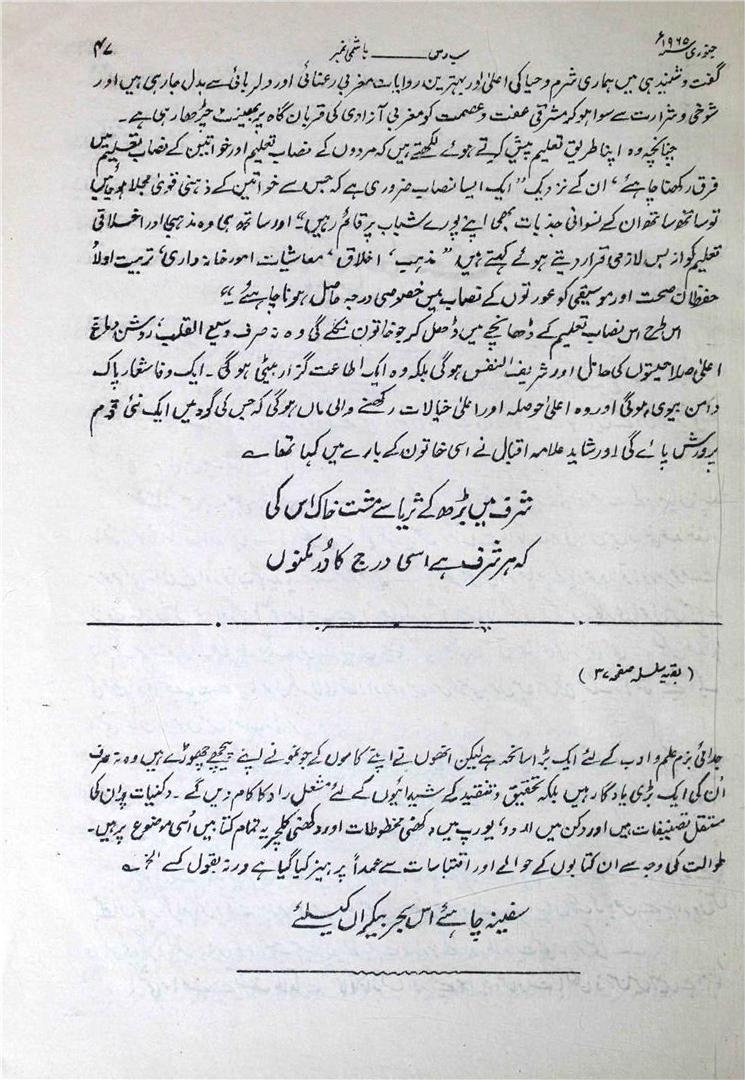 جنوری ۱۹۶۵ء سب رس ـــــ ہاشمی نمبر ۴۷
گفت و شنید ہی میں ہماری شرم و حیا کی اعلیٰ اور بہترین روایات مغربی رعنائی اور دلربائی سے بدل جارہی ہیں اور
شوخی و شرارت سے سوا ہو کر مشرقی عفت و عصمت کو مغربی آزادی کی قربان گاہ پر بھینٹ چڑھا رہی ہے۔
چنانچہ وہ اپنا طریق تعلیم پیش کرتے ہوئے لکھتے ہیں کہ مردوں کے نصاب تعلیم اور خواتین کے نصاب تعلیم میں
فرق رکھنا چاہئے، ان کے نزدیک "ایک ایسا نصاب ضروری ہے کہ جس سے خواتین کے ذہنی قویٰ مجلا ہو جائیں
تو ساتھ ساتھ ان کے نسوانی جذبات بھی اپنے پورے شباب پر قائم رہیں"۔ اور ساتھ ہی وہ مذہبی اور اخلاقی
تعلیم کو از بس لازمی قرار دیتے ہوئے کہتے ہیں "مذہب، اخلاق، معاشیات امور خانہ داری، تربیت اولاد
حفظان صحت اور موسیقی کو عورتوں کے نصاب میں خصوصی درجہ حاصل ہونا چاہئے۔"
اس طرح اس نصاب تعلیم کے ڈھانچے میں ڈھل کر جو خاتون نکلے گی وہ نہ صرف وسیع القلب، روشن دماغ
اعلیٰ صلاحیتوں کی حامل اور شریف النفس ہوگی بلکہ وہ ایک اطاعت گزار بیٹی ہوگی۔ ایک وفا شعار پاک
دامن بیوی ہوگی اور وہ اعلیٰ حوصلہ اور اعلیٰ خیالات رکھنے والی ماں ہوگی کہ جس کی گود میں ایک نئی قوم
پرورش پائے گی! اور شاید علامہ اقبال نے اسی خاتون کے بارے میں کہا تھا ؎
شرف میں بڑھ کے ثریا سے مشت خاک اس کی
کہ ہر شرف ہے اسی درج کا دُرِ مکنوں
(بقیہ سلسلہ صفحہ ۳۷)
جدائی بزم علم و ادب کے لئے ایک بڑا سانحہ ہے لیکن انھوں نے اپنے کاموں کے جو نمونے اپنے پیچھے چھوڑے ہیں وہ نہ صرف
اُن کی ایک بڑی یادگار ہیں بلکہ تحقیق و تنقید کے شیدائیوں کے لئے مشعل راہ کا کام دیں گے۔ دکنیات پر ان کی
مستقل تصنیفات ہیں اور دکن میں اردو، یورپ میں دکھنی مخطوطات اور دکھنی کلچر یہ تمام کتابیں اُسی موضوع پر ہیں۔
طوالت کی وجہ سے ان کتابوں کے حوالے اور اقتباسات سے عمداً پرہیز کیا گیا ہے ورنہ بقول کسے ؎
سفینہ چاہئے اس بحر بیکراں کیلئے